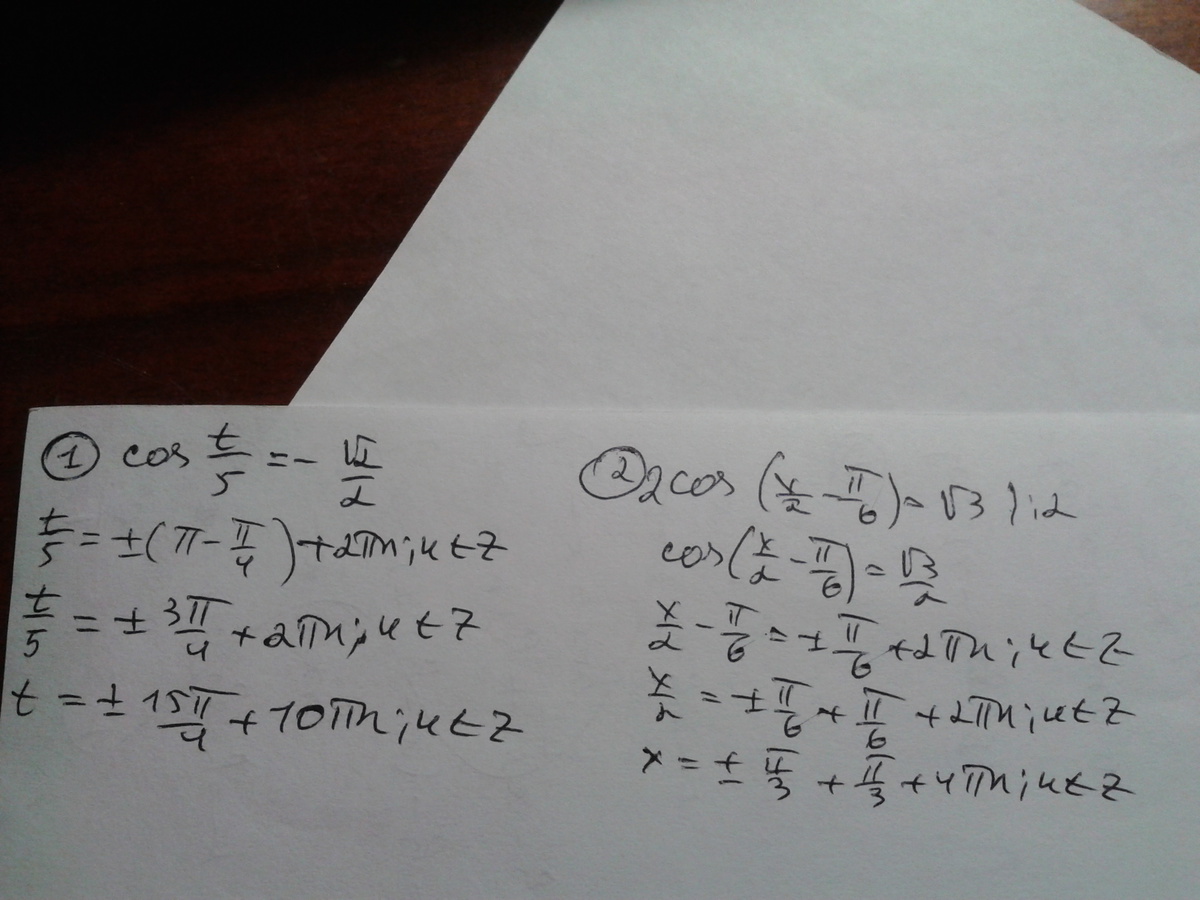 ① cos t/5 = - √2/2
t/5 = ±(π - π/4) + 2πn; n ∈ Z
t/5 = ± 3π/4 + 2πn; n ∈ Z
t = ± 15π/4 + 10πn; n ∈ Z
② 2cos (x/2 - π/6) = √3 | :2
cos(x/2 - π/6) = √3/2
x/2 - π/6 = ± π/6 + 2πn; n ∈ Z
x/2 = ± π/6 + π/6 + 2πn; n ∈ Z
x = ± π/3 + π/3 + 4πn; n ∈ Z